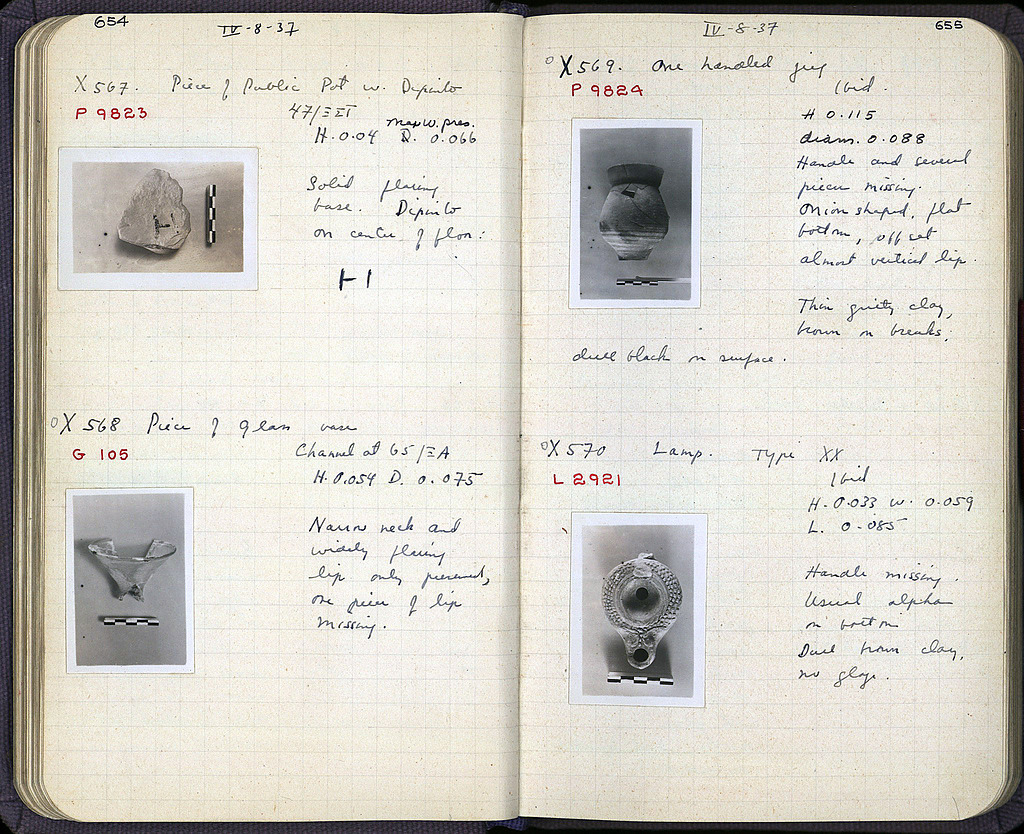 654
IV-8-37
X 567. Piece of Public Pot w. Dipinto
P 9823
47/ΞΣΤ
max w. pres.
H. 0.04 D. 0.066
Solid flaring
base. Dipinto
on center of floor:
X 568 Piece of glass vase
G 105
Channel at 65/ΞΑ
H. 0.054 D. 0.075
Narrow neck and
widely flaring
lip only preserved,
one piece of lip
missing.
655
IV-8-37
X 569. One handled jug
P 9824
Ibid.
H 0.115
diam. 0.088
Handle and several
pieces missing.
Onion shaped, flat
bottom, offset
almost vertical lip.
Thin gritty clay,
brown on breaks,
dull black on surface.
X 570 Lamp. Type XX
L 2921
Ibid
H. 0.033 W. 0.059
L. 0.085
Handle missing.
Usual alpha
on bottom
Dull brown clay,
no glaze.